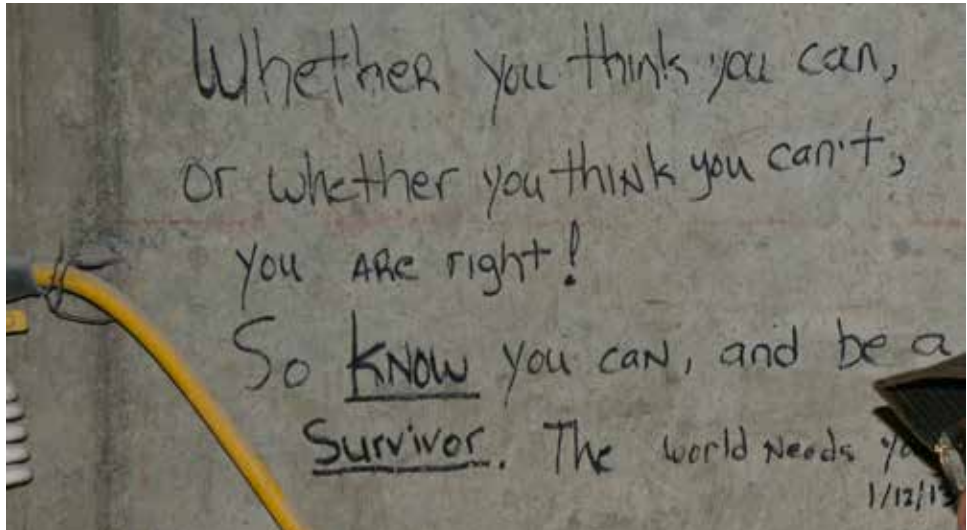 Whether you think you can,
or whether you think you can't,
you are right!
So know you can, and be a
Survivor. The world needs
1/12/13